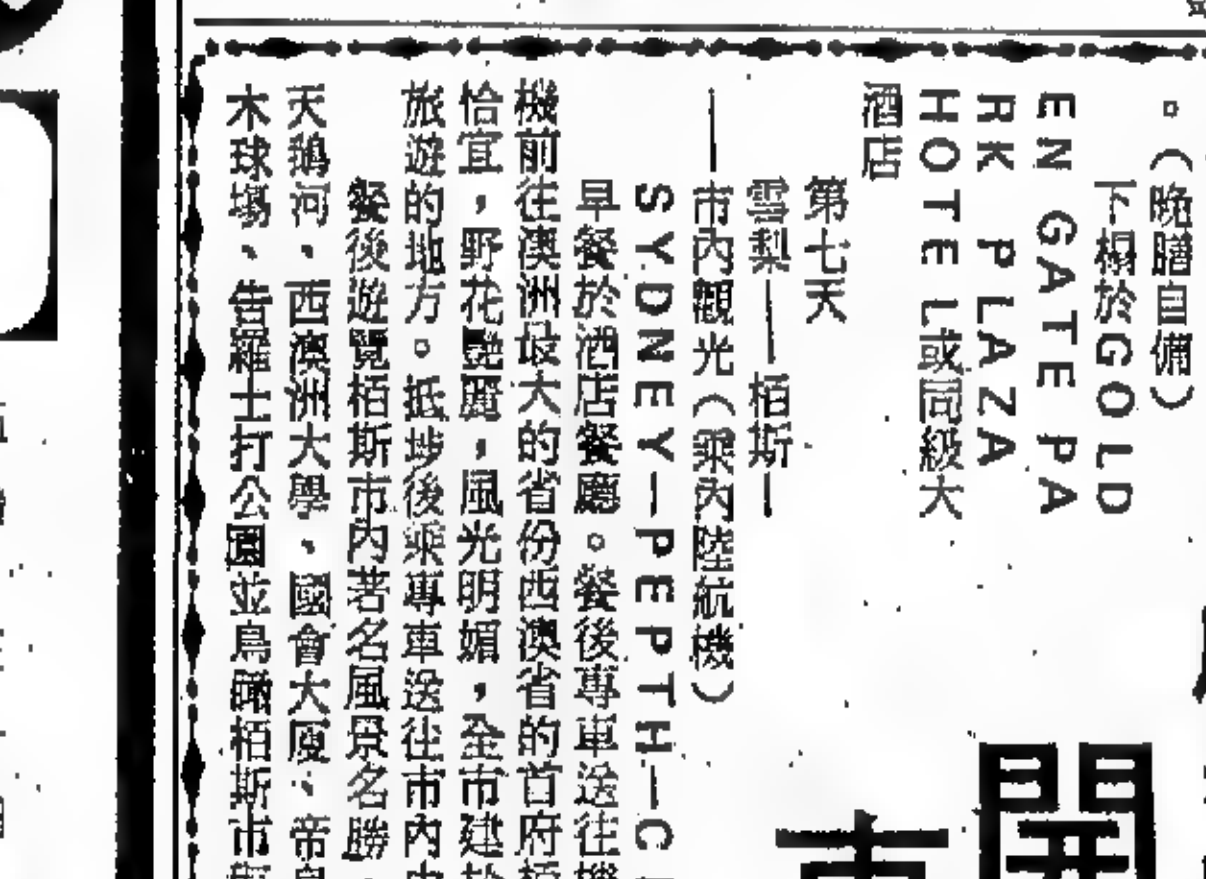 。（晚膳自備）
下榻於GOLD
EN GATE PA
RK PLAZA
HOTEL或同級大
酒店
第七天
雪梨——栢斯—
—市內觀光（乘內陸航機）
SYDNEY—PEPTH—C
早餐於酒店餐廳。餐後專車送往機
機前往澳洲最大的省份西澳省的首府栢
恰宜，野花艷麗，風光明媚，全市建於
旅遊的地方。抵埗後乘專車送往市內
餐後遊覽栢斯市內著名風景名勝
天鵝河、西澳洲大學、國會大廈、帝
木球場、告羅士打公園並鳥瞰栢斯市
開